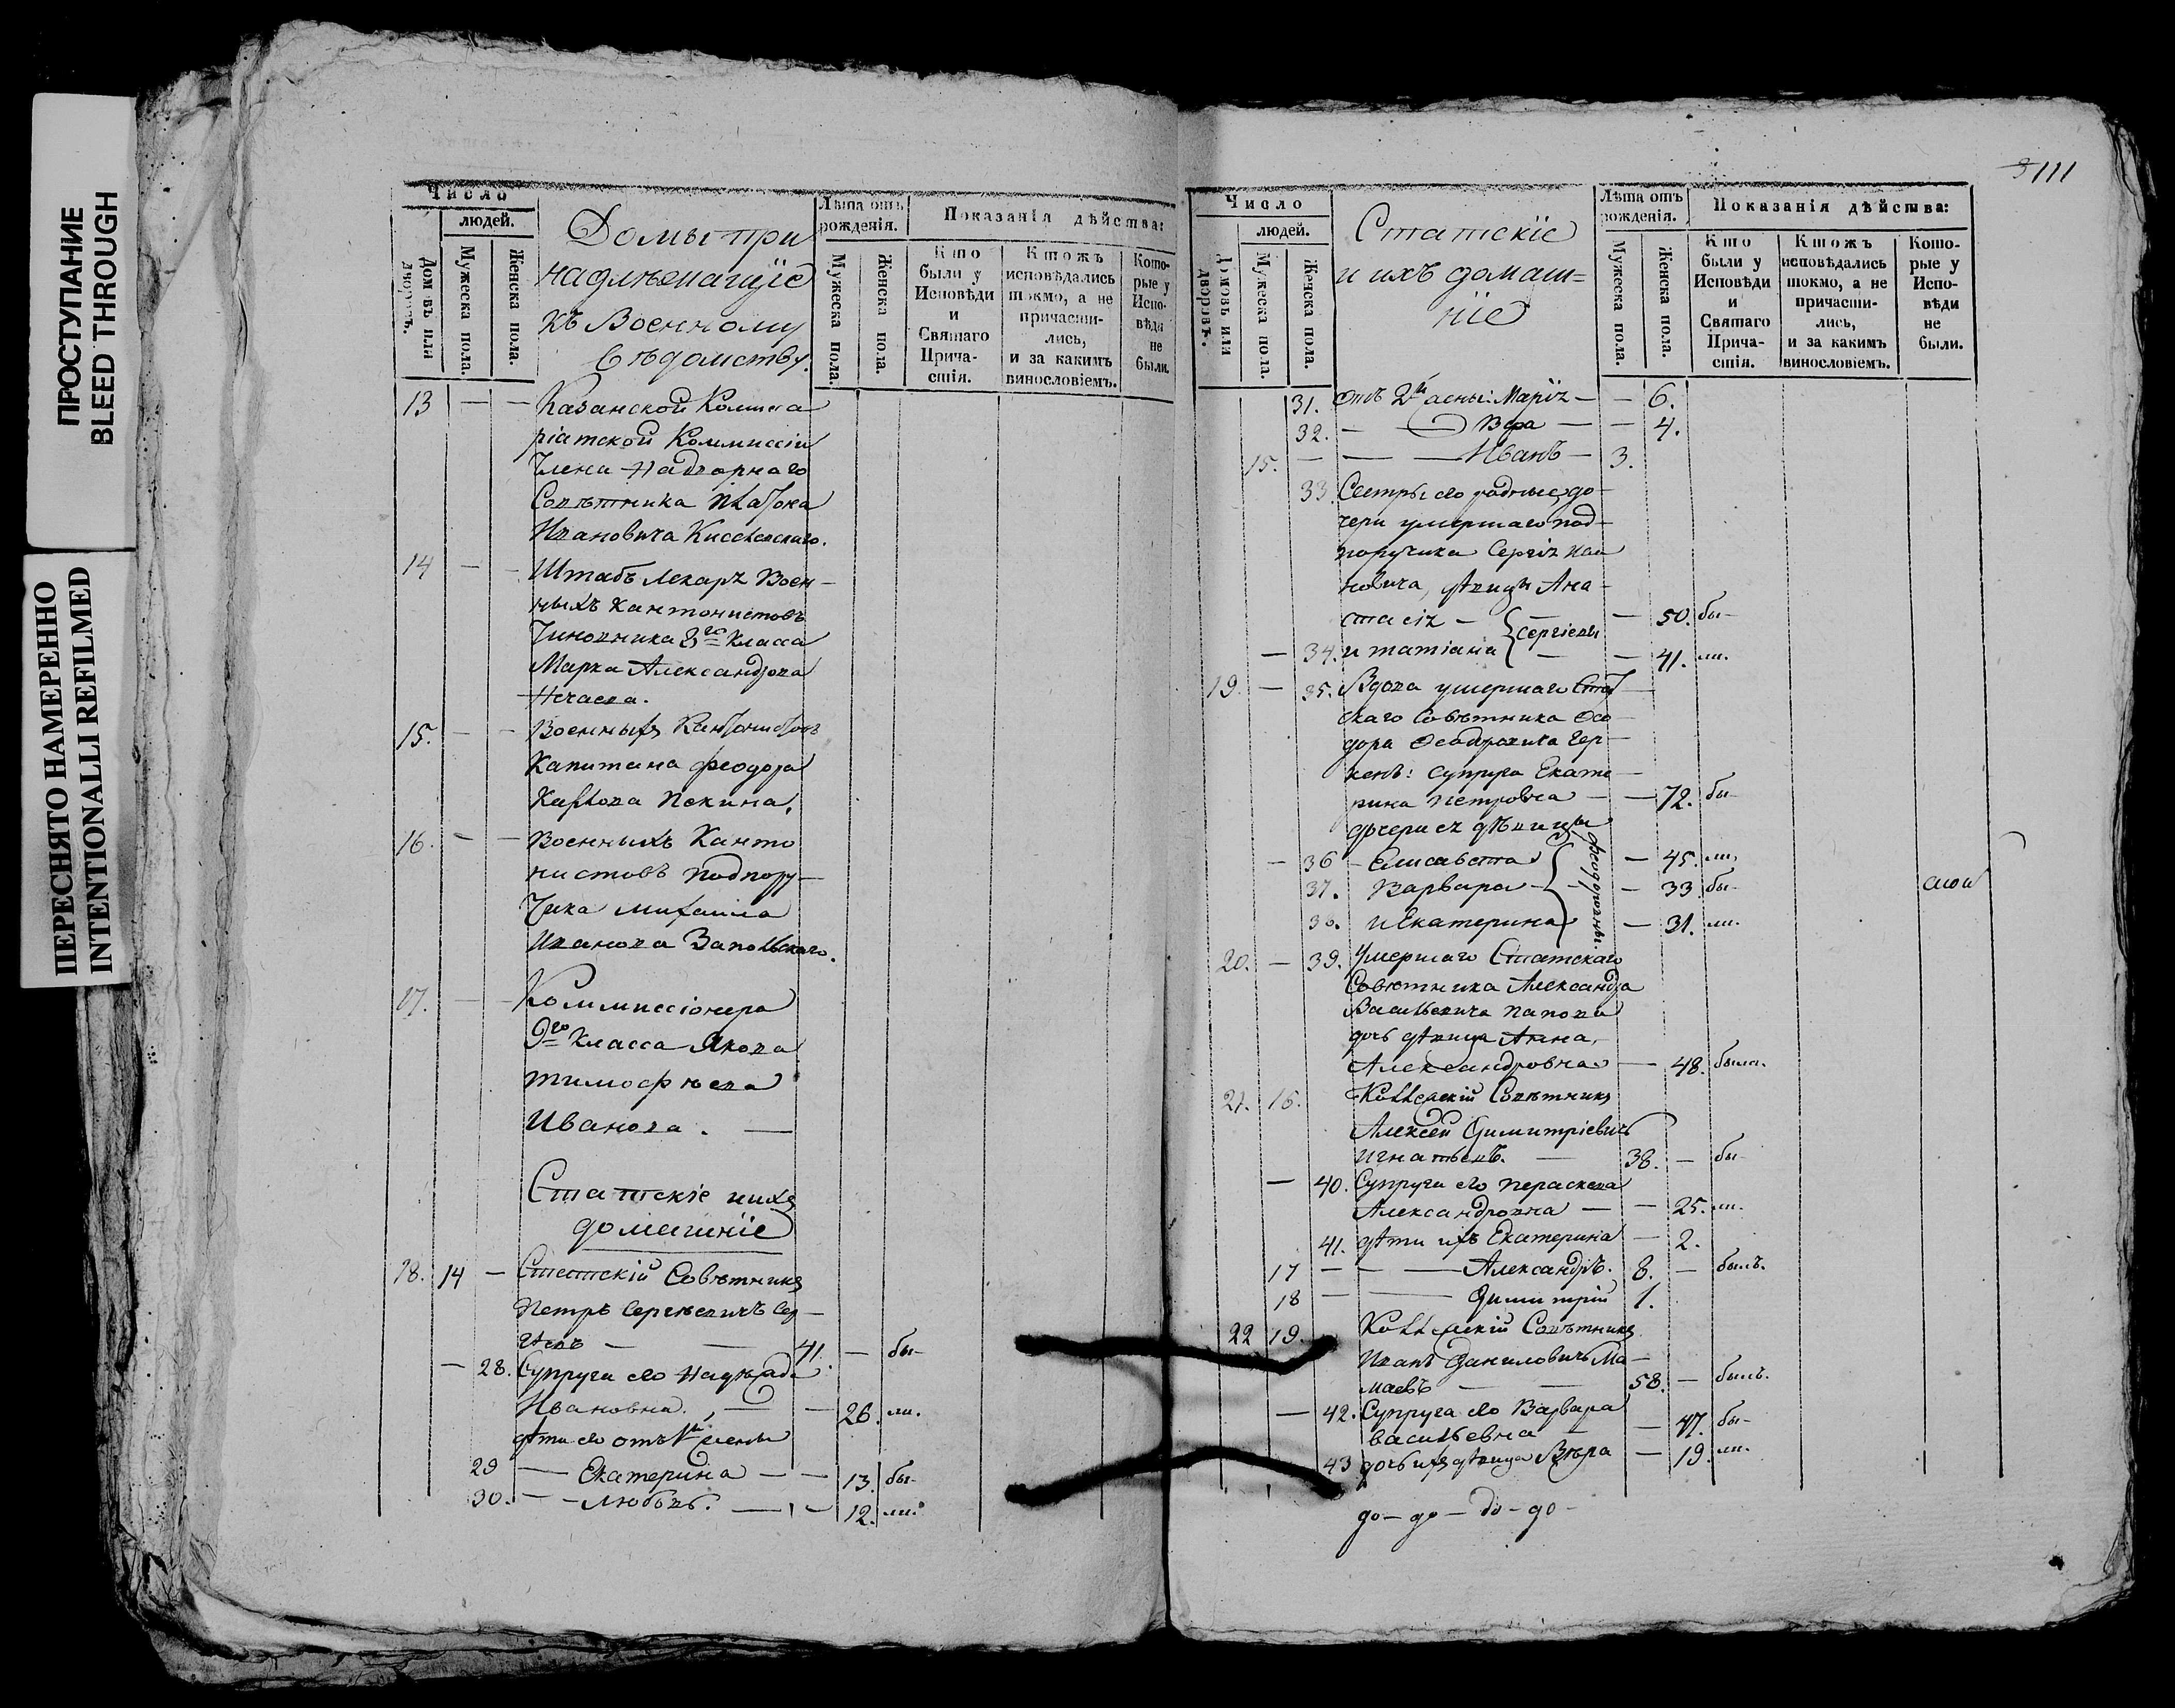 ПРОСТУПАНИЕ
BLEED THROUGH
ПЕРЕСНЯТО НАМЕРЕННО
INTENTIONALLI REFILMED
Число
людей.
Домовъ или дворовъ.
Мужеска пола.
Женска пола.
Домы при
надлѣжащіе
къ Военному
вѣдомству.
Лѣта отъ рожденія.
Мужеска пола.
Женска пола.
Показанія дѣйства:
Кто были у Исповѣди и Святаго Причастія.
Ктожъ исповѣдались токмо, а не причастились, и за какимъ винословіемъ.
Которые у Исповѣди не были.
13 — — Казанской Коммиса
ріатской Коммиссіи
Члена Надворнаго
Совѣтника Платона
Ивановича
14 — — Штабъ Лекаря Воен-
ныхъ Кантонистовъ
Чиновника 8го Класса
Марка Александрова
Нечаева.
15. — — Военныхъ Кантонистовъ
Капитана Феодора
Карлова Пекина.
16. — — Военныхъ Канто
нистовъ Подпору-
чика Михаила
Иванова Запольскаго.
17. — — Коммиссіонера
9го Класса Якова
Тимофѣева
Иванова. —
Статскіе и ихъ
домашніе
18. 14 — Статскій Совѣтникъ
Петръ Сергѣевичъ Сер-
гѣевъ — — 41. — бы-
— 28. Супруга его Надежда
Ивановна. — — 26. ли.
дѣти его отъ 1й жены
29 — Екатерина — — 13. бы-
30. — — Любовь. — — 12. ли.
111
Число
людей.
Домовъ или дворовъ.
Мужеска пола.
Женска пола.
Статскіе
и ихъ домаш=
ніе
Лѣта отъ рожденія.
Мужеска пола.
Женска пола.
Показанія дѣйства:
Кто были у Исповѣди и Святаго Причастія.
Ктожъ исповѣдались токмо, а не причастились, и за какимъ винословіемъ.
Которые у Исповѣди не были.
31. отъ 2й жены: Марія — — 6.
32. — Вѣра — — 4.
15. — — — Иванъ — 3.
33. Сестры его родные, до-
чери умершаго под-
поручика Сергія Ива
новича, дѣвицы Ана-
стасія — Сергіевы — 50. бы-
— 34. и Татіана — — 41. ли.
19. — 35. Вдова умершаго Стат
скаго Совѣтника Фео
дора Феодоровича Гер-
кенъ: супруга Екате-
рина Петровна — — 72. бы-
дочери ея дѣвицы
— 36 — Елисавета Феодоровны. — 45. ли,
37. Варвара — — 33. бы-
38. и Екатерина — 31. ли.
20. — 39. Умершаго Статскаго
Совѣтника Александра
Васильевича Папова
дочь дѣвица Анна,
Александровна — 48. была.
21. 16. Коллежскій Совѣтникъ
Алексей Димитріевичъ
Игнатьевъ. — 38. — бы-
— 40. Супруга его Параскева
Александровна — — 25. ли.
41. дѣти ихъ Екатерина — 2.
17 — — — Александръ. 8. — былъ.
18 — — Димитрій 1.
22 19. Коллежскій Совѣтникъ
Иванъ Даниловичъ Ма-
маевъ — — 58. — былъ.
— 42. Супруга его Варвара
Васильевна — — 47. бы-
43 дочь ихъ дѣвица Вѣра — 19. ли.
до- до- до- до-